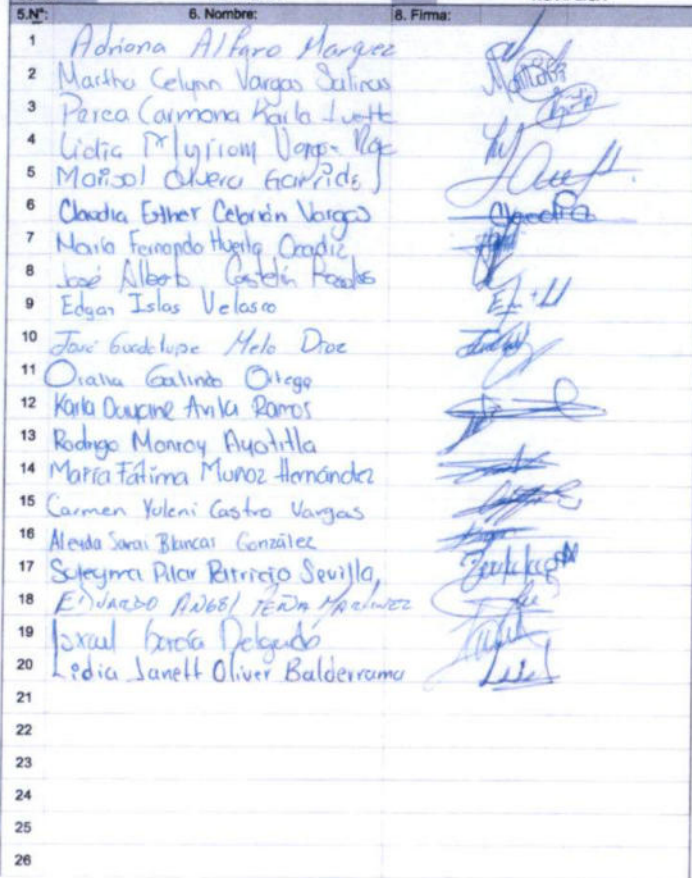 5.N°: 6. Nombre: 8. Firma:
1 Adriana Alfaro Marquez
2 Martha Celynn Vargas Salinas
3 Perea Carmona Karla Ivette
4 Lidia Myriam
5 Marisol Olvera Garrido
6 Claudia Esther Cebrión Vargas Claudia
7 María Fernanda Huerta
8 José Alberto Castelán Rosales
9 Edgar Islas Velasco
10 José Guadalupe Melo Diaz
11 Oralia Galindo Ortega
12 Karla Avila Ramos
13 Rodrigo Monroy Ayotitla
14 María Fátima Muñoz Hernández
15 Carmen Yuleni Castro Vargas
16 Aleyda Sarai Blancas González
17 Suleyma Pilar Patricio Sevilla
18 EDUARDO ANGEL PEÑA MARTINEZ
19 García Delgado
20 Lidia Janett Oliver Balderrama
21
22
23
24
25
26